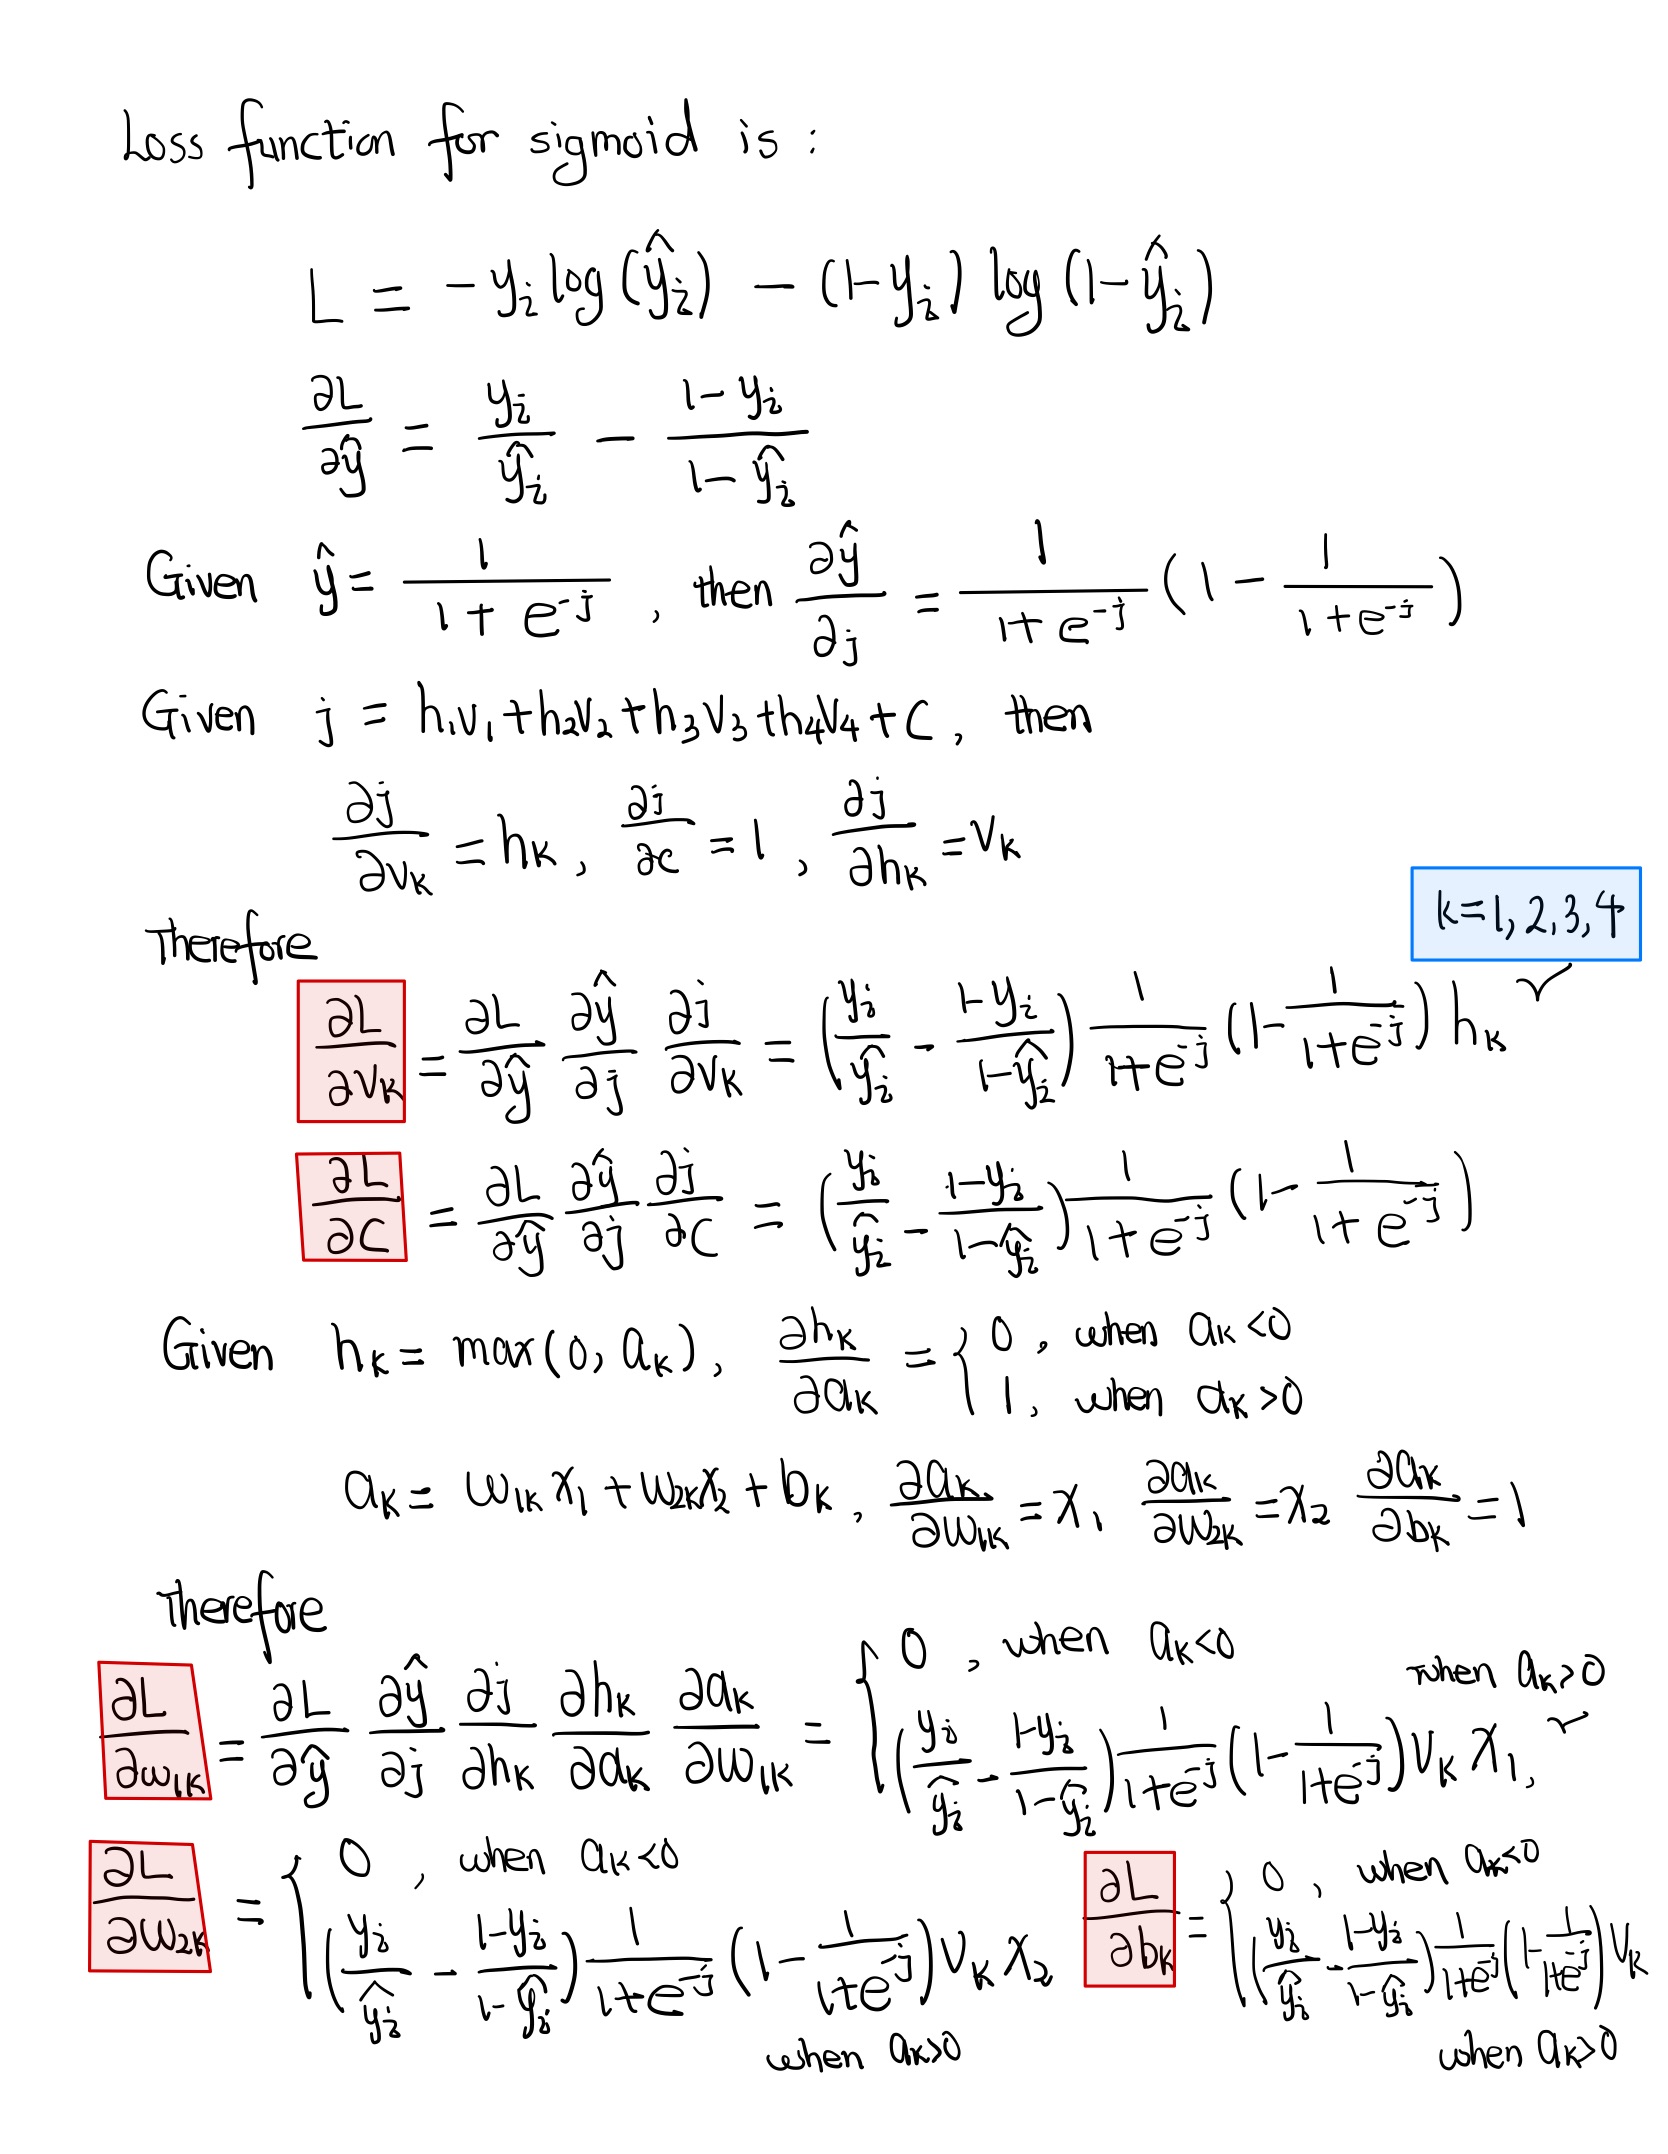 Loss function for sigmoid is :
L = - yᵢ log (ŷᵢ) - (1-yᵢ) log (1-ŷᵢ)
∂L/∂ŷ = yᵢ/ŷᵢ - (1-yᵢ)/(1-ŷᵢ)
Given ŷ = 1/(1+e^-j) , then ∂ŷ/∂j = 1/(1+e^-j) (1 - 1/(1+e^-j))
Given j = h₁v₁+h₂v₂+h₃v₃+h₄v₄+c, then
∂j/∂vₖ = hₖ, ∂j/∂c = 1, ∂j/∂hₖ = vₖ
k=1,2,3,4
Therefore
∂L/∂vₖ = ∂L/∂ŷ ∂ŷ/∂j ∂j/∂vₖ = (yᵢ/ŷᵢ - (1-yᵢ)/(1-ŷᵢ)) 1/(1+e^-j) (1 - 1/(1+e^-j)) hₖ ✓
∂L/∂c = ∂L/∂ŷ ∂ŷ/∂j ∂j/∂c = (yᵢ/ŷᵢ - (1-yᵢ)/(1-ŷᵢ)) 1/(1+e^-j) (1 - 1/(1+e^-j))
Given hₖ = max(0, aₖ), ∂hₖ/∂aₖ = { 0, when aₖ<0
1, when aₖ>0
aₖ = w₁ₖ x₁ + w₂ₖ x₂ + bₖ, ∂aₖ/∂w₁ₖ = x₁ ∂aₖ/∂w₂ₖ = x₂ ∂aₖ/∂bₖ = 1
Therefore
∂L/∂w₁ₖ = ∂L/∂ŷ ∂ŷ/∂j ∂j/∂hₖ ∂hₖ/∂aₖ ∂aₖ/∂w₁ₖ = { 0, when aₖ<0
(yᵢ/ŷᵢ - (1-yᵢ)/(1-ŷᵢ)) 1/(1+e^-j) (1 - 1/(1+e^-j)) vₖ x₁, when aₖ>0 ✓
∂L/∂w₂ₖ = { 0, when aₖ<0
(yᵢ/ŷᵢ - (1-yᵢ)/(1-ŷᵢ)) 1/(1+e^-j) (1 - 1/(1+e^-j)) vₖ x₂
when aₖ>0
∂L/∂bₖ = { 0, when aₖ<0
(yᵢ/ŷᵢ - (1-yᵢ)/(1-ŷᵢ)) 1/(1+e^-j) (1 - 1/(1+e^-j)) vₖ
when aₖ>0